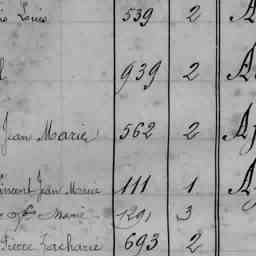 Louis 539 2
939 2
Jean Marie 562 2
Vincent Jean Marie 111 1
Marie 1291 3
Pierre Zacharie 693 2